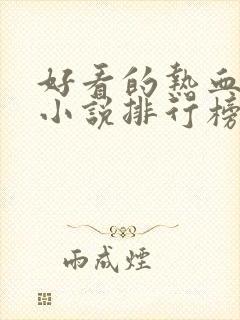 好看的热血
小说排行榜
雨成煙